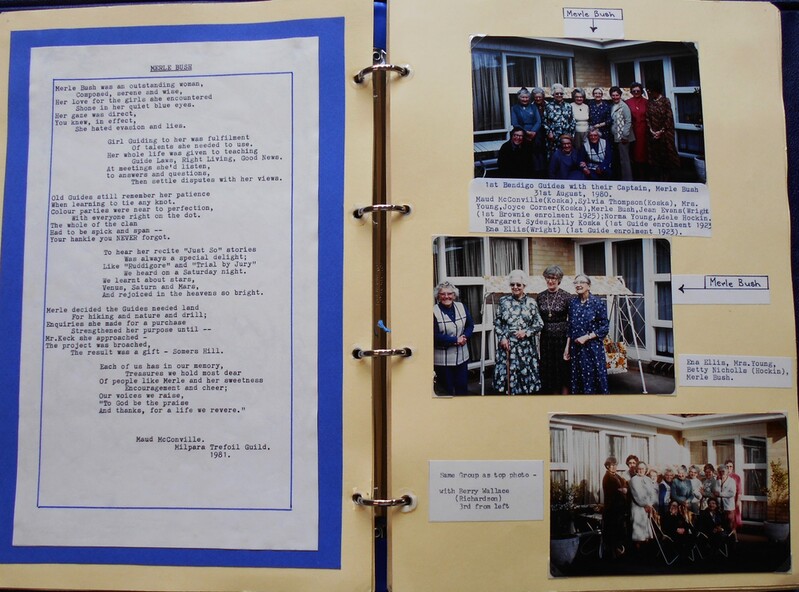 MERLE BUSH
Merle Bush was an outstanding woman,
Composed, serene and wise,
Her love for the girls she encountered
Shone in her quiet blue eyes.
Her gaze was direct,
You knew, in effect,
She hated evasion and lies.
Girl Guiding to her was fulfilment
Of talents she needed to use.
Her whole life was given to teaching
Guide Laws, Right Living, Good News.
At meetings she'd listen,
to answers and questions,
Then settle disputes with her views.
Old Guides still remember her patience
When learning to tie any knot.
Colour parties were near to perfection,
With everyone right on the dot.
The whole of the clan
Had to be spick and span --
Your hankie you NEVER forgot.
To hear her recite "Just So" stories
Was always a special delight;
Like "Ruddigore" and "Trial by Jury"
We heard on a Saturday night.
We learnt about stars,
Venus, Saturn and Mars,
And rejoiced in the heavens so bright.
Merle decided the Guides needed land
For hiking and nature and drill;
Enquiries she made for a purchase
Strengthened her purpose until --
Mr.Keck she approached -
The project was broached,
The result was a gift - Somers Hill.
Each of us has in our memory,
Treasures we hold most dear
Of people like Merle and her sweetness
Encouragement and cheer;
Our voices we raise,
"To God be the praise
And thanks, for a life we revere."
Maud McConville.
Milpara Trefoil Guild.
1981.
Merle Bush
1st Bendigo Guides with their Captain, Merle Bush
31st August, 1980.
Maud McConville(Koska),Sylvia Thompson(Koska), Mrs.
Young,Joyce Corner(Koska),Merle Bush,Jean Evans(Wright
(1st Brownie enrolment 1925);Norma Young,Adele Hockin.
Margaret Sydes,Lilly Koska (1st Guide enrolment 1923
Ena Ellis(Wright) (1st Guide enrolment 1923).
Merle Bush
Ena Ellis, Mrs.Young,
Betty Nicholls (Hockin),
Merle Bush.
Same Group as top photo -
with Berry Wallace
(Richardson)
3rd from left